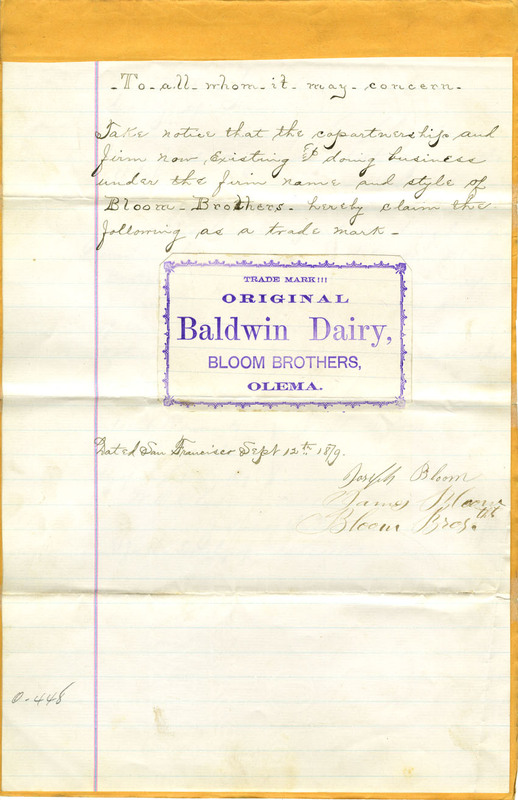 - To - all - whom - it - may - concern -
Take notice that the copartnership and
firm now, existing & doing business
under the firm name and style of
Bloom - Brothers - hereby claim the
following as a trade mark -
TRADE MARK!!!
ORIGINAL
Baldwin Dairy,
BLOOM BROTHERS,
OLEMA.
Dated San Francisco Sept 12th 1879.
Joseph Bloom
James Bloom
Bloom Bros.
O-448